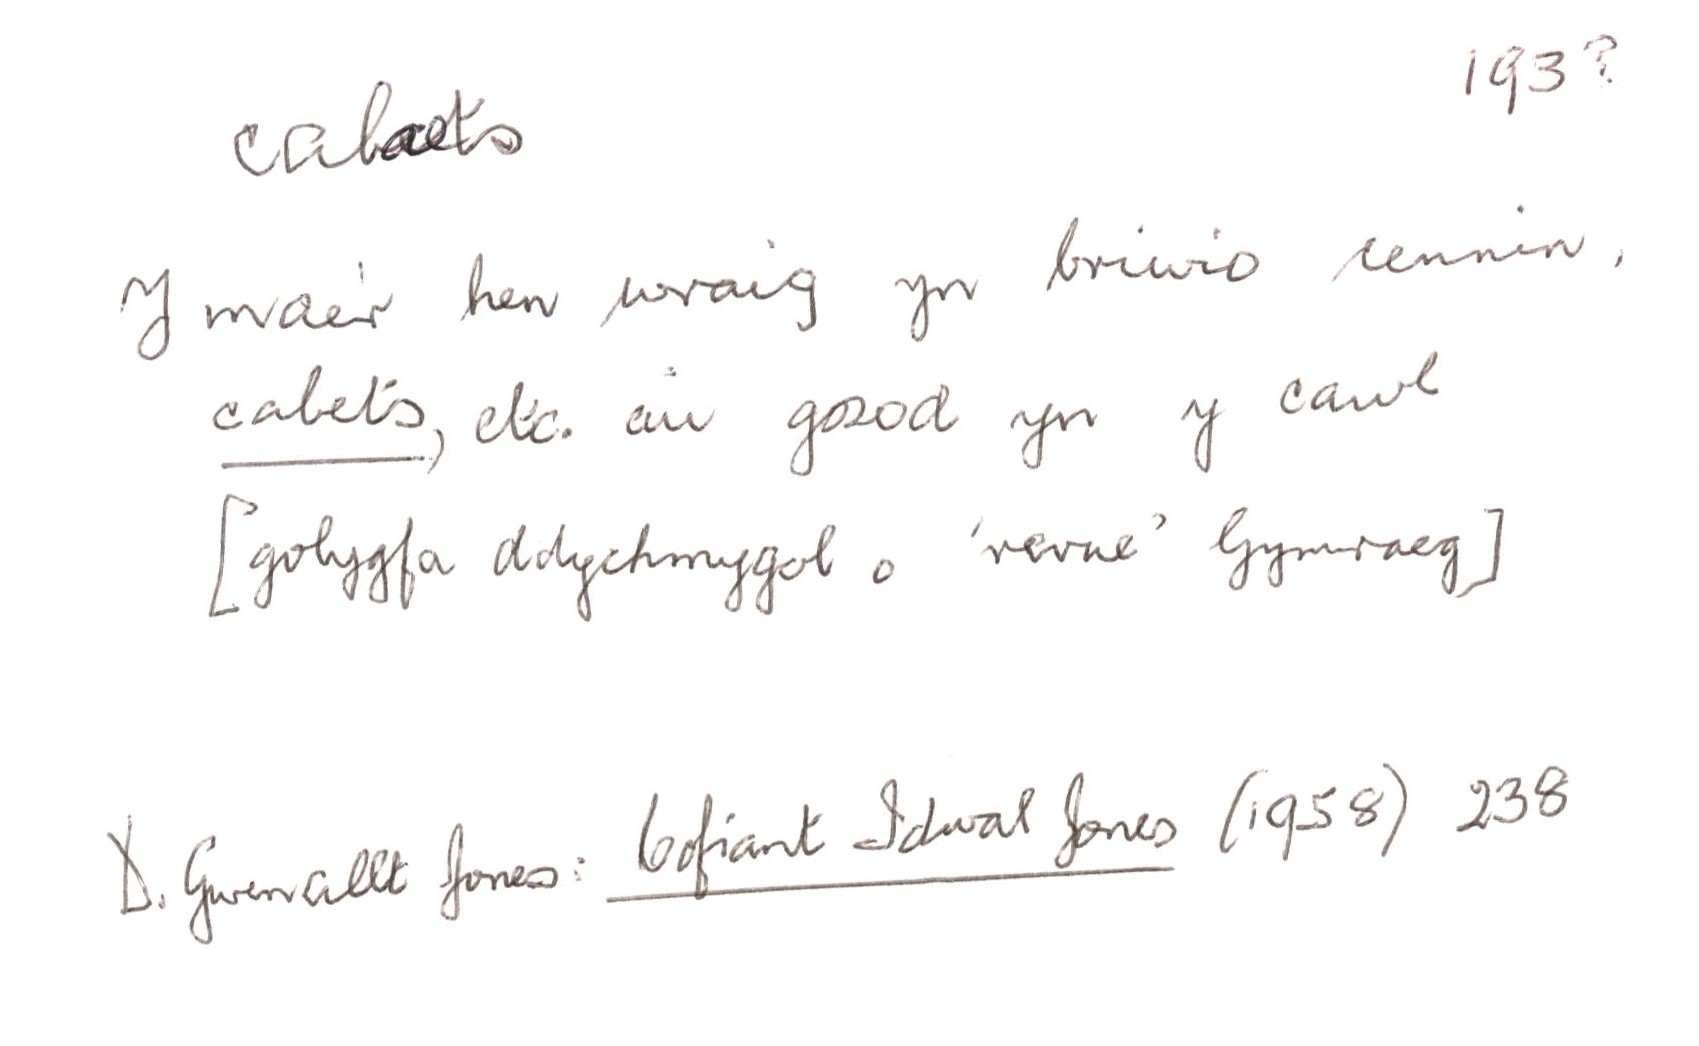 193?
cabaets
Y mae'r hen wraig yn briwio cennin,
cabets, etc. a'u gosod yn y cawl
[golygfa ddychmygol o 'revue' Gymraeg]
D. Gwenallt Jones: Cofiant Idwal Jones (1958) 238